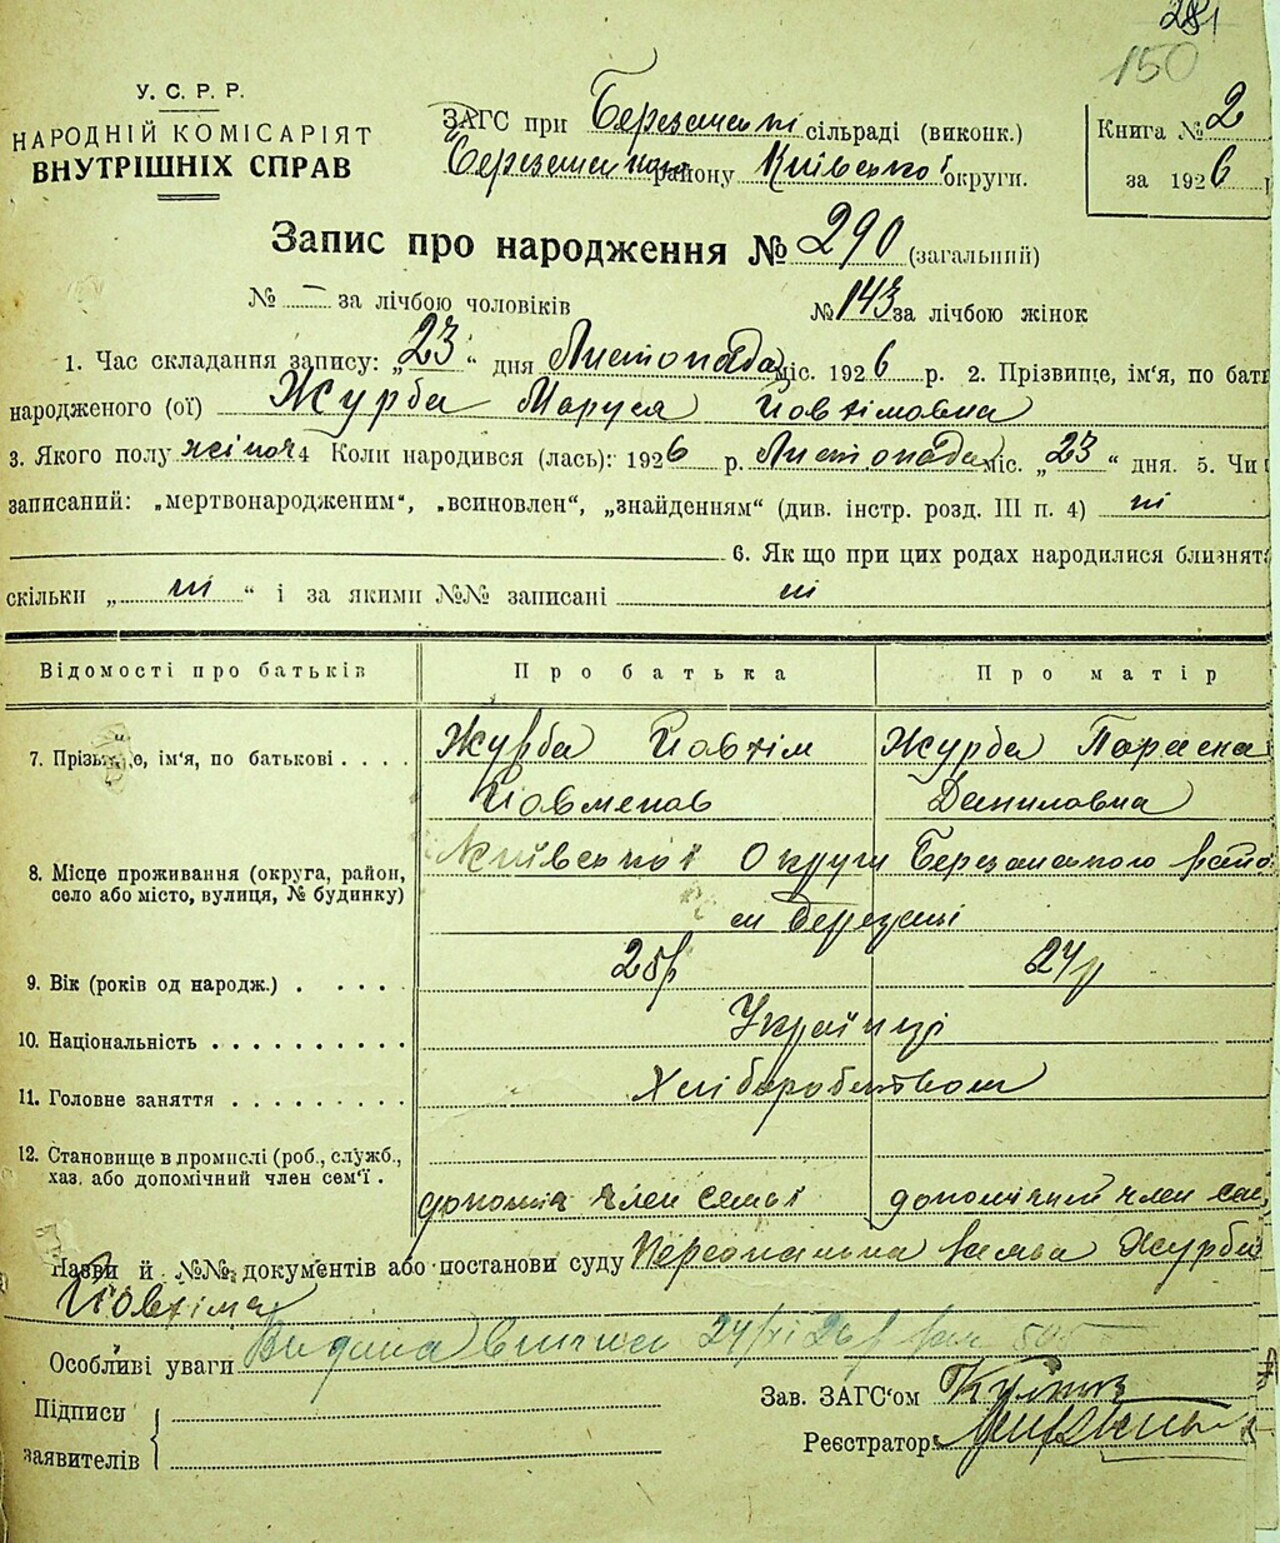 281
150
У. С. Р. Р.
НАРОДНІЙ КОМІСАРІЯТ
ВНУТРІШНІХ СПРАВ
ЗАГС при Березанські сільраді (виконк.)
Березанського району Київської округи.
Книга № 2
за 1926
Запис про народження № 290 (загальний)
№ — за лічбою чоловіків № 143 за лічбою жінок
1. Час складання запису: „23“ дня Листопада міс. 1926 р. 2. Прізвище, ім'я, по бать
народженого (ої) Журба Маруся Йовтімовна
3. Якого полу жіноч 4 Коли народився (лась): 1926 р. Листопада міс. „23“ дня. 5. Чи
записаний: „мертвонародженим“, „всиновлен“, „знайденням“ (див. інстр. розд. III п. 4) ні
6. Як що при цих родах народилися близнят
скільки „ні“ і за якими №№ записані ні
Відомості про батьків Про батька Про матір
7. Прізвище, ім'я, по батькові . . . . Журба Йовтім Журба Параска
Даниловна
8. Місце проживання (округа, район, село або місто, вулиця, № будинку) Київської Округи Березанського райо
м Березані
9. Вік (років од народж.) . . . . . 25р 24р
10. Національність . . . . . . . . . . Українці
11. Головне заняття . . . . . . . . . Хліборобством
12. Становище в промислі (роб., служб.,
хаз. або допомічний член сем'ї . допоміч член семьї допомічний член сем
Назви й №№ документів або постанови суду Персональна заява Журби
Йовтіма
Особливі уваги Видана виписка 24/XI 26р
Підписи
заявителів
Зав. ЗАГС'ом
Реєстратор